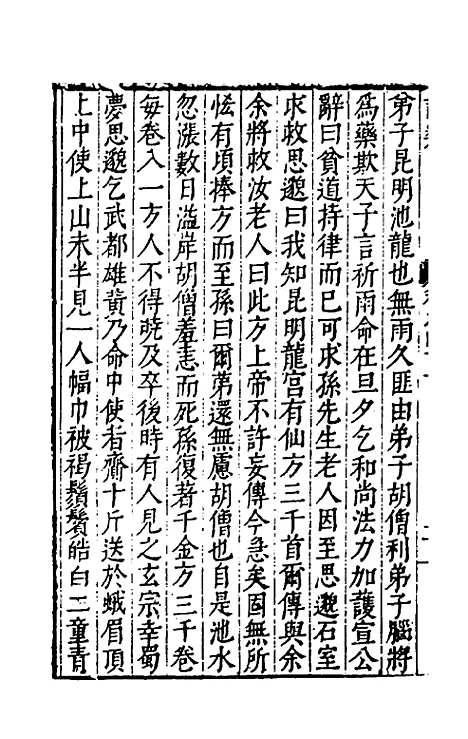 弟子昆明池龍也無雨久匪由弟子胡僧利弟子腦將
爲藥欺天子言祈雨命在旦夕乞和尚法力加護宣公
辭曰貧道持律而已可求孫先生老人因至思邈石室
求救思邈曰我知昆明龍宫有仙方三千首爾傳與余
余將救汝老人曰此方上帝不許妄傳今急矣固無所
恡有頃捧方而至孫曰爾苐還無慮胡僧也自是池水
忽漲數日溢岸胡僧羞恚而死孫復著千金方三千卷
每卷入一方人不得曉及卒後時有人見之玄宗幸蜀
夢思邈乞武都雄黃乃命中使者齎十斤送於蛾眉頂
上中使上山未半見一人幅巾被褐鬚鬢皓白二童青